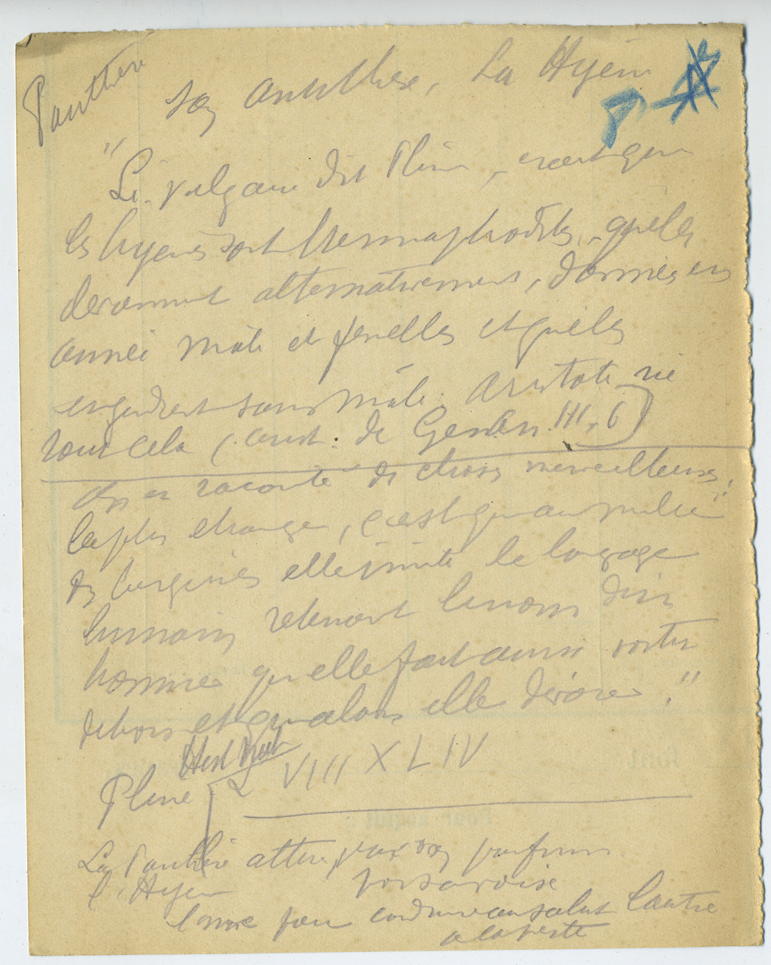 Panthère
son antithèse, La Hyène
"Le vulgaire dit Pline, croit que
les hyènes sont hermaphrodites, qu'elles
deviennent alternativement, d'année en
année mâle et femelles et qu'elles
engendrent sans mâle. Aristote nie
tout cela ( de Gen An. III, 6)
On en raconte des choses merveilleuses,
la plus étrange, c'est qu'au milieu
des bergeries elle imite le langage
humain retenant le nom d'un
homme qu'elle fait ainsi sortir
dehors et qu'alors elle dévore."
Pline Hist Nat VIII XLIV
La Panthère attire par son parfum
l'Hyène par sa voix
l'une pour conduire au salut l'autre
à la perte